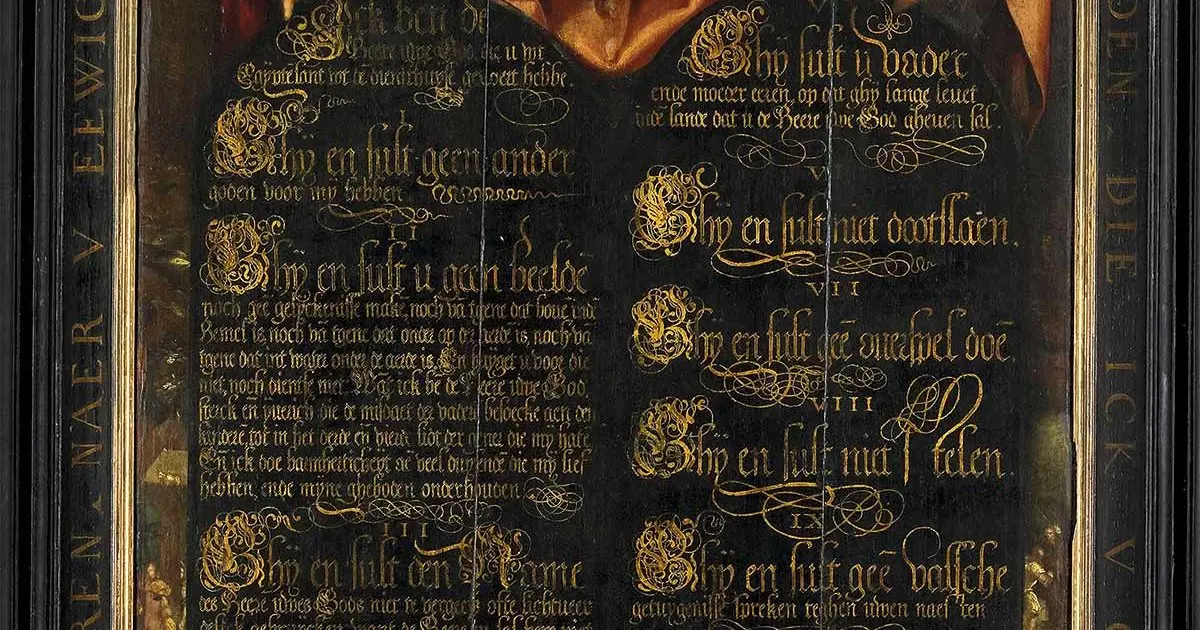 Ick ben de
Heere uwe God, die u wt
Egyptelant wt de diensthuyse gevoert hebbe.
I
Ghy en sult geen ander
goden voor my hebben.
II
Ghy en sult u geen beeldē
noch geē gelyckenisse makē, noch vā tgene dat bovē indē
Hemel is, noch vā tgene dat onder op der aerdē is, noch vā
tgene dat int water onder de aerde is. En buyget u voor die
niet, noch dientse niet. Wāt ick bē de Heere uwe God,
sterck eñ yverich die de misdaet der vaderē besoecke aen den
kinderē, tot in het derde eñ vierde lidt der gener die my hatē
Eñ ick doe barmherticheyt aē veel duysende die my lief
hebben, ende myne gheboden onderhouden.
III
Ghy en sult den Name
des Heere uwes Gods niet te vergeefs ofte lichtveer
V
Ghy sult u vader
ende moeder eeren, op dat ghy lange levet
indē lande dat u de Heere uwe God gheven sal.
V
Ghy en sult niet dootslaen.
VII
Ghy en sult geē overspel doē
VIII
Ghy en sult niet stelen.
IX
Ghy en sult geē valsche
getuygenisse spreken teghen uwen naesten
REN · NAER V EEWIG
DEN · DIE ICK V G